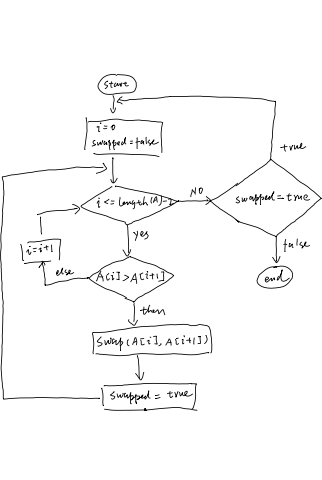 start
i=0
swapped=false
i <= length(A)-1
NO
swapped=true
true
false
end
yes
i=i+1
else
A[i]>A[i+1]
then
Swap(A[i], A[i+1])
swapped = true